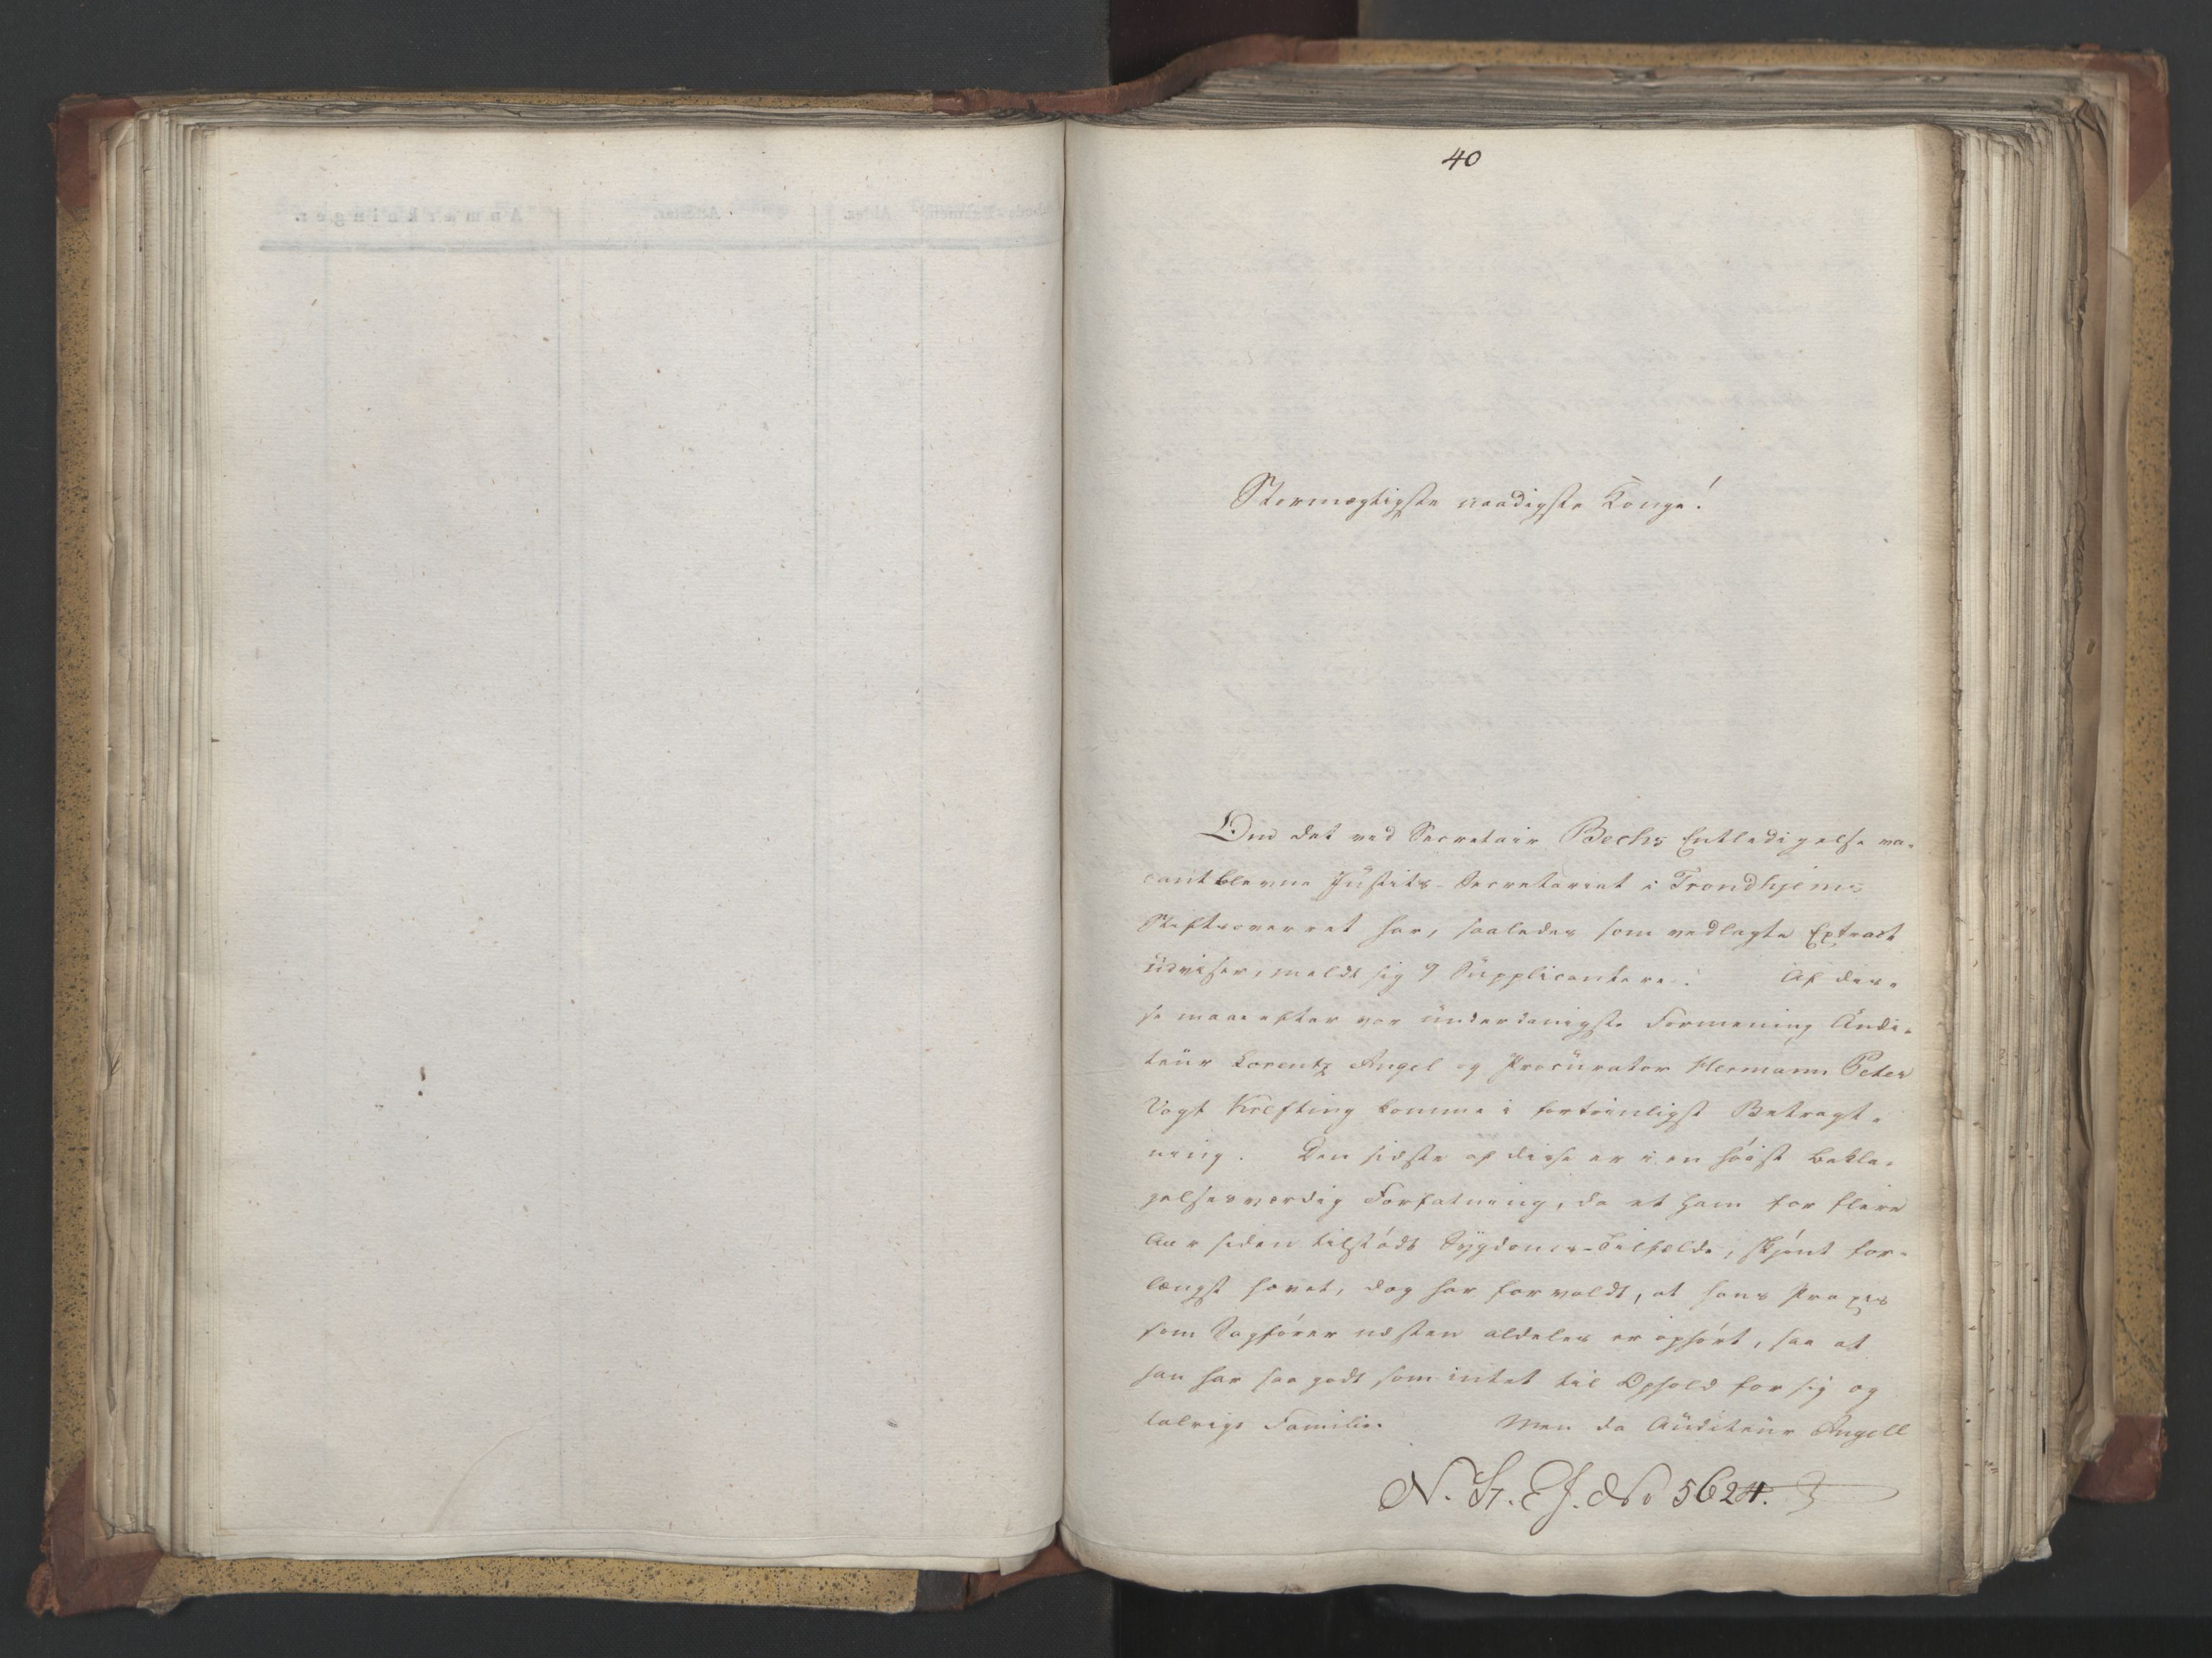 40
Stormægtigste naadigste Konge!
Om det ved Secretair Bechs Entledigelse va-
cantblevne Justits-Secretariat i Trondhjems
Stiftsoverret har, saaledes som vedlagte Extract
udviser, meldt sig 9 Supplicantere. Af des-
se maae efter vor underdanigste Formening Audi-
teur Lorentz Angel og Procurator Hermann Peter
Vogt Krefting komme i fortrinligst Betragt-
ning. Den sidste af disse er i en høist bekla-
gelsesværdig Forfatning, da et ham for flere
Aar siden tilstødt Sygdoms-Tilfælde, skjønt for-
længst hævet, dog har forvoldt, at hans Praxis
som Sagfører næsten aldeles er ophørt, saa at
han har saa godt som intet til Ophold for sig og
talrige Familie. Men da Auditeur Angell
N. St. J. No 5624.
Anmærkninger.
Attester.
Alder.